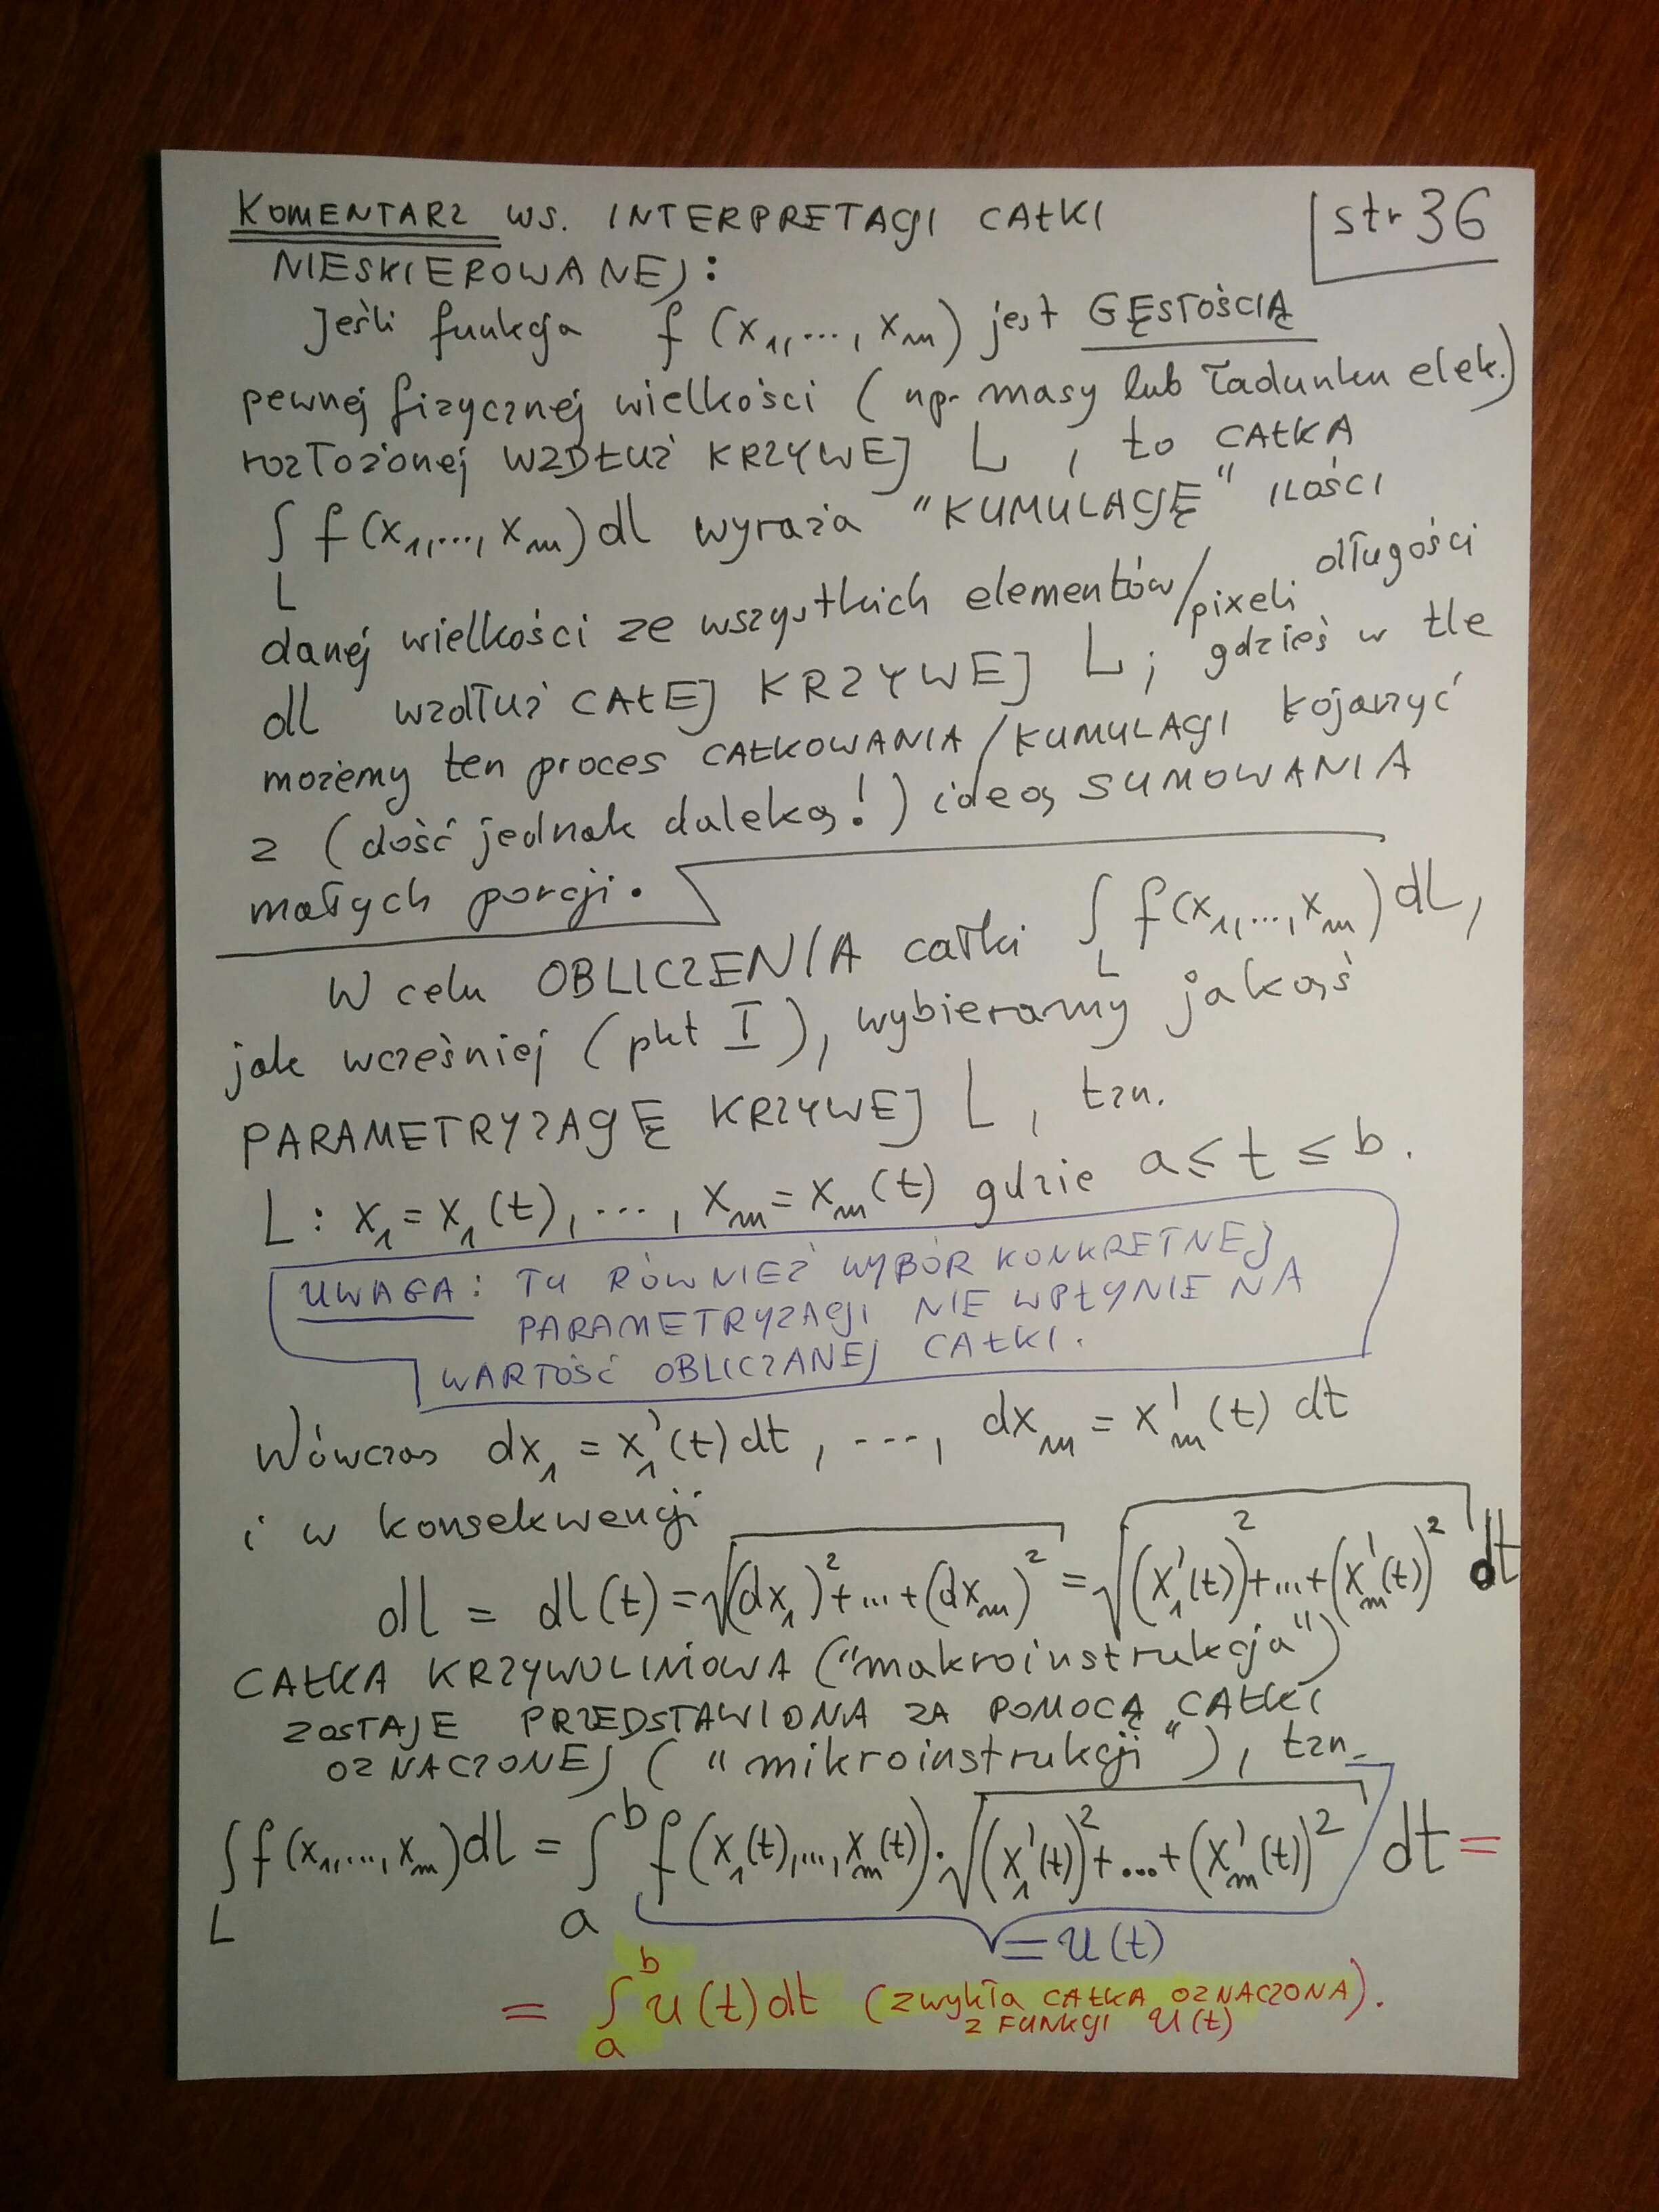 KOMENTARZ WS. INTERPRETACJI CAŁKI
str 36
NIESKIEROWANEJ:
Jeśli funkcja f (x₁,..., xₘ) jest GĘSTOŚCIĄ
pewnej fizycznej wielkości (np. masy lub ładunku elek.)
rozłożonej WZDŁUŻ KRZYWEJ L, to CAŁKA
∫_L f(x₁,..., xₘ) dl wyraża "KUMULACJĘ" ILOŚCI
danej wielkości ze wszystkich elementów/pixeli długości
dl wzdłuż CAŁEJ KRZYWEJ L; gdzieś w tle
możemy ten proces CAŁKOWANIA/KUMULACJI kojarzyć
z (dość jednak daleką!) ideą SUMOWANIA
małych porcji.
W celu OBLICZENIA całki ∫_L f(x₁,..., xₘ) dL,
jak wcześniej (pkt I), wybieramy jakąś
PARAMETRYZACJĘ KRZYWEJ L, tzn.
L: x₁ = x₁(t), ..., xₘ = xₘ(t) gdzie a ≤ t ≤ b.
UWAGA: TU RÓWNIEŻ WYBÓR KONKRETNEJ
PARAMETRYZACJI NIE WPŁYNIE NA
WARTOŚĆ OBLICZANEJ CAŁKI.
Wówczas dx₁ = x₁'(t) dt, ..., dxₘ = xₘ'(t) dt
i w konsekwencji
dl = dl(t) = √((dx₁)² + ... + (dxₘ)²) = √((x₁'(t))² + ... + (xₘ'(t))²) dt
CAŁKA KRZYWOLINIOWA ("makroinstrukcja")
ZOSTAJE PRZEDSTAWIONA ZA POMOCĄ CAŁKI
OZNACZONEJ ("mikroinstrukcji"), tzn.
∫_L f(x₁,..., xₘ) dl = ∫_a^b f(x₁(t),..., xₘ(t)) · √((x₁'(t))² + ... + (xₘ'(t))²) dt =
= u(t)
= ∫_a^b u(t) dt (zwykła CAŁKA OZNACZONA
Z FUNKCJI u(t)).